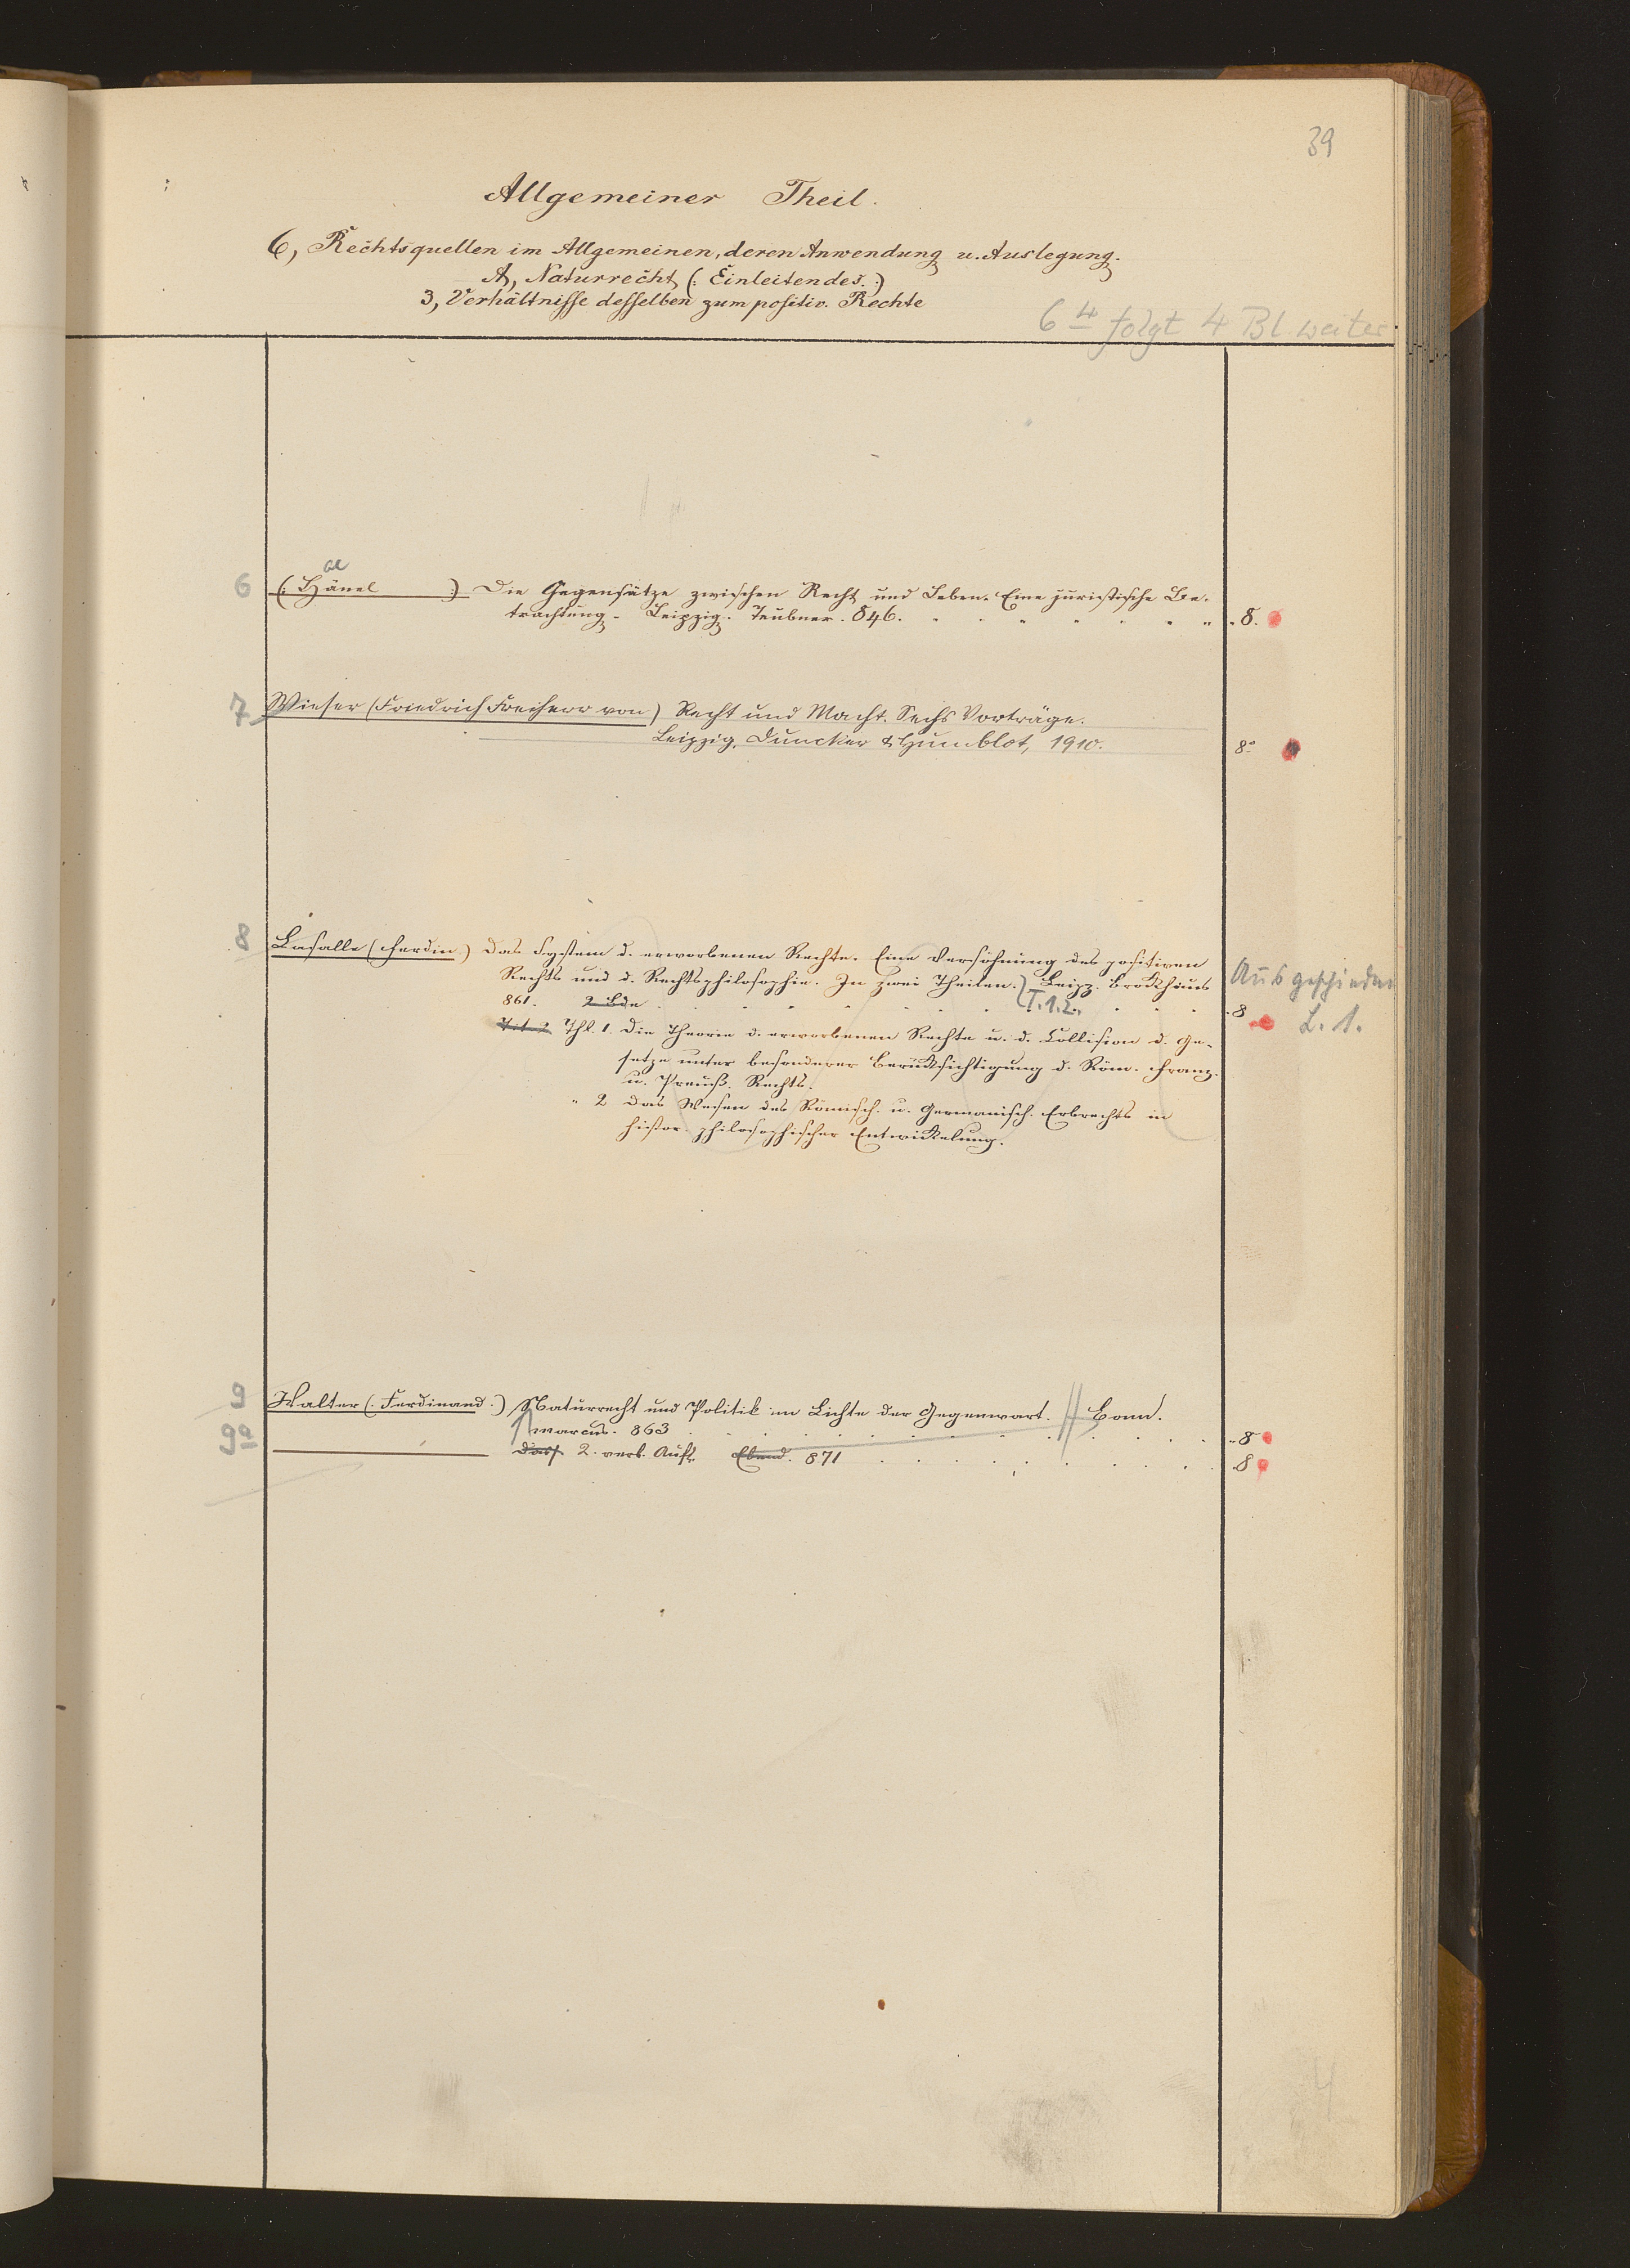 39
Allgemeiner Theil.
6, Rechtsquellen im Allgemeinen, deren Anwendung u. Auslegung.
A, Naturrecht, (: Einleitendes. :)
3, Verhältnisse desselben zum positiv. Rechte
6 4 folgt 4 Bl. weiter
ae
6 (: Hänel :) Die Gegensätze zwischen Recht und Leben. Eine juristische Be-
trachtung. Leipzig. Teubner. 846. 8.
7 Wieser (Friedrich Freiherr von) Recht und Macht. Sechs Vorträge.
Leipzig, Duncker & Humblot, 1910. 8°
8 Lasalle (Ferdin.) Das System d. erworbenen Rechte. Eine Versöhnung des positiven
Rechts und d. Rechtsphilosophie. In zwei Theilen. Leipz. Brockhaus Ausgeschieden
861. 2 Bde T. 1. 2. 8 L. 1.
Thl. 1. Die Theorie d. erworbenen Rechte u. d. Collision d. Ge-
setze unter besonderer Berücksichtigung d. Röm. Franz.
u. Preuß. Rechts.
" 2 Das Wesen des Römisch. u. Germanisch. Erbrechts in
histor. philosophischer Entwickelung.
9 Walter (: Ferdinand :) Naturrecht und Politik im Lichte der Gegenwart. Bonn.
Marcus. 863 8
9a Dass. 2. verb. Aufl. Ebend. 871 8
4